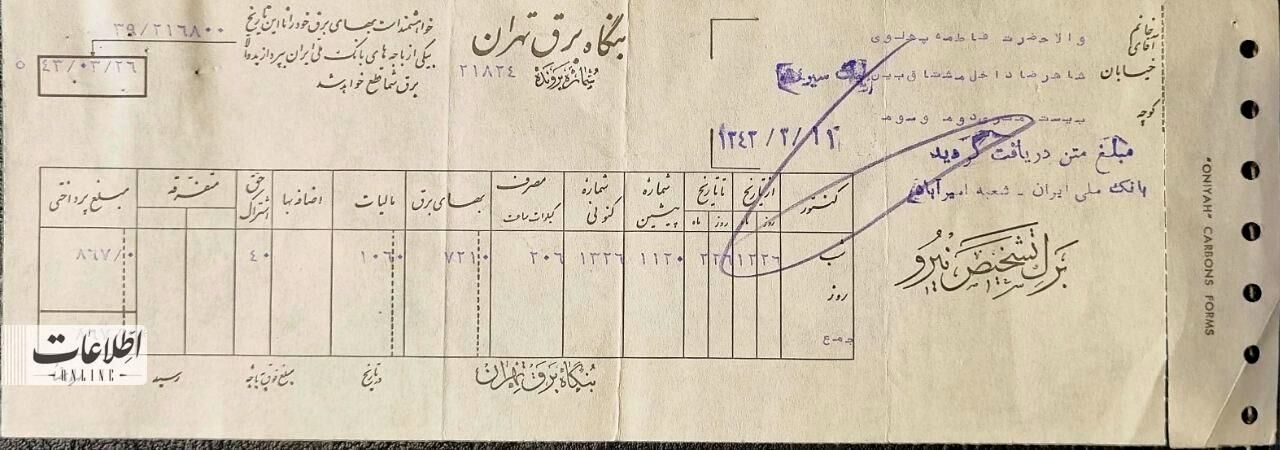 خانم
آقای
والاحضرت فاطمه پهلوی
خیابان
شاهرضا داخل مشتاق بین
کوچه
بیست متری دوم و سوم
بنگاه برق تهران
شماره پرونده
۲۱۸۲۴
خواهشمند است بهای برق خود را تا این تاریخ
بیکی از باجه های بانک ملی ایران بپردازید والا
برق شما قطع خواهد شد
۳۹/۲۱۶۸۰۰
۴۳/۰۳/۲۶
۱۳۴۳/۳/۱۱
مبلغ متن دریافت گردید
بانک ملی ایران - شعبه امیرآباد
برگ تشخیص نیرو
کنتور
از تاریخ
روز
ماه
تا تاریخ
روز
ماه
شماره پیشین
شماره کنونی
مصرف
کیلووات ساعت
بهای برق
مالیات
اضافه بها
حق اشتراک
متفرقه
مبلغ پرداختی
شب
۱۱۲۰
۱۳۲۶
۲۰۶
۷۲۱۰
۱۰۶۰
۴۰
۸۶۷/۰
روز
جمع
بنگاه برق تهران
در تاریخ
مبلغ فوق به باجه
رسید
اطلاعات
ONLINE
"ONIYAH" CARBONS FORMS